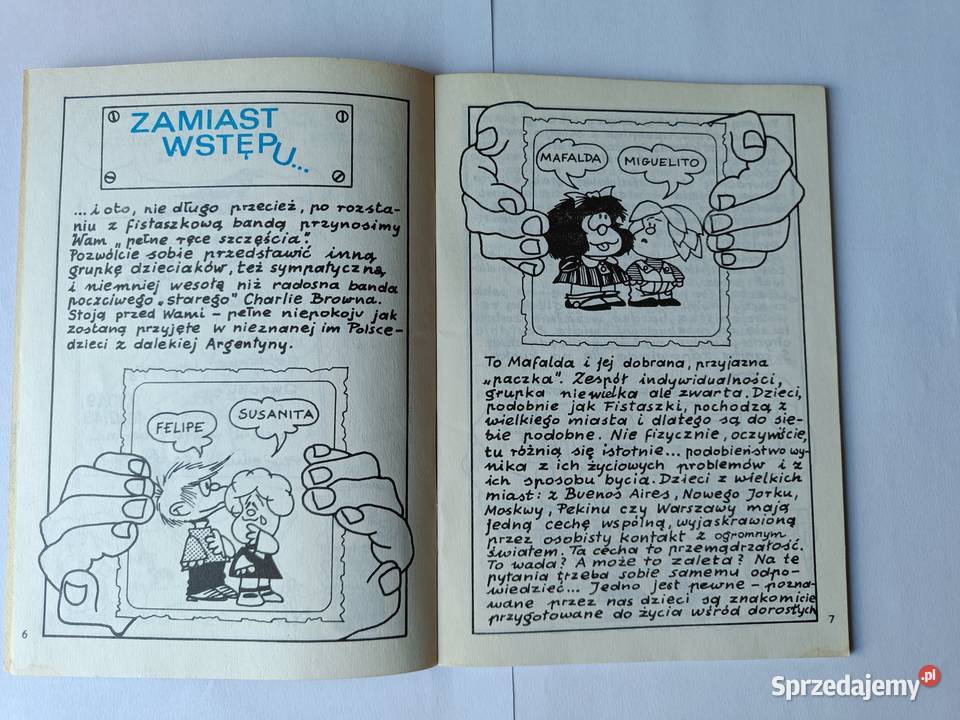 ZAMIAST
WSTĘPU...
...i oto, nie długo przecież, po rozsta-
niu z fistaszkową bandą przynosimy
Wam „pełne ręce szczęścia".
Pozwólcie sobie przedstawić inną
grupkę dzieciaków, też sympatyczną
i niemniej wesołą niż radosna banda
poczciwego „starego" Charlie Browna.
Stoją przed Wami – pełne niepokoju jak
zostaną przyjęte w nieznanej im Polsce–
dzieci z dalekiej Argentyny.
FELIPE
SUSANITA
6
MAFALDA
MIGUELITO
To Mafalda i jej dobrana, przyjazna
„paczka". Zespół indywidualności,
grupka niewielka ale zwarta. Dzieci,
podobnie jak Fistaszki, pochodzą z
wielkiego miasta i dlatego są do sie-
bie podobne. Nie fizycznie, oczywiście,
tu różnią się istotnie... podobieństwo wy-
nika z ich życiowych problemów i z
ich sposobu bycia. Dzieci z wielkich
miast: z Buenos Aires, Nowego Jorku,
Moskwy, Pekinu czy Warszawy mają
jedną cechę wspólną, wyjaskrawioną
przez osobisty kontakt z ogromnym
światem. Ta cecha to przemądrzałość.
To wada? A może to zaleta? Na te
pytania trzeba sobie samemu odpo-
wiedzieć... Jedno jest pewne – pozna-
wane przez nas dzieci są znakomicie
przygotowane do życia wśród dorosłych
7
Sprzedajemy.pl